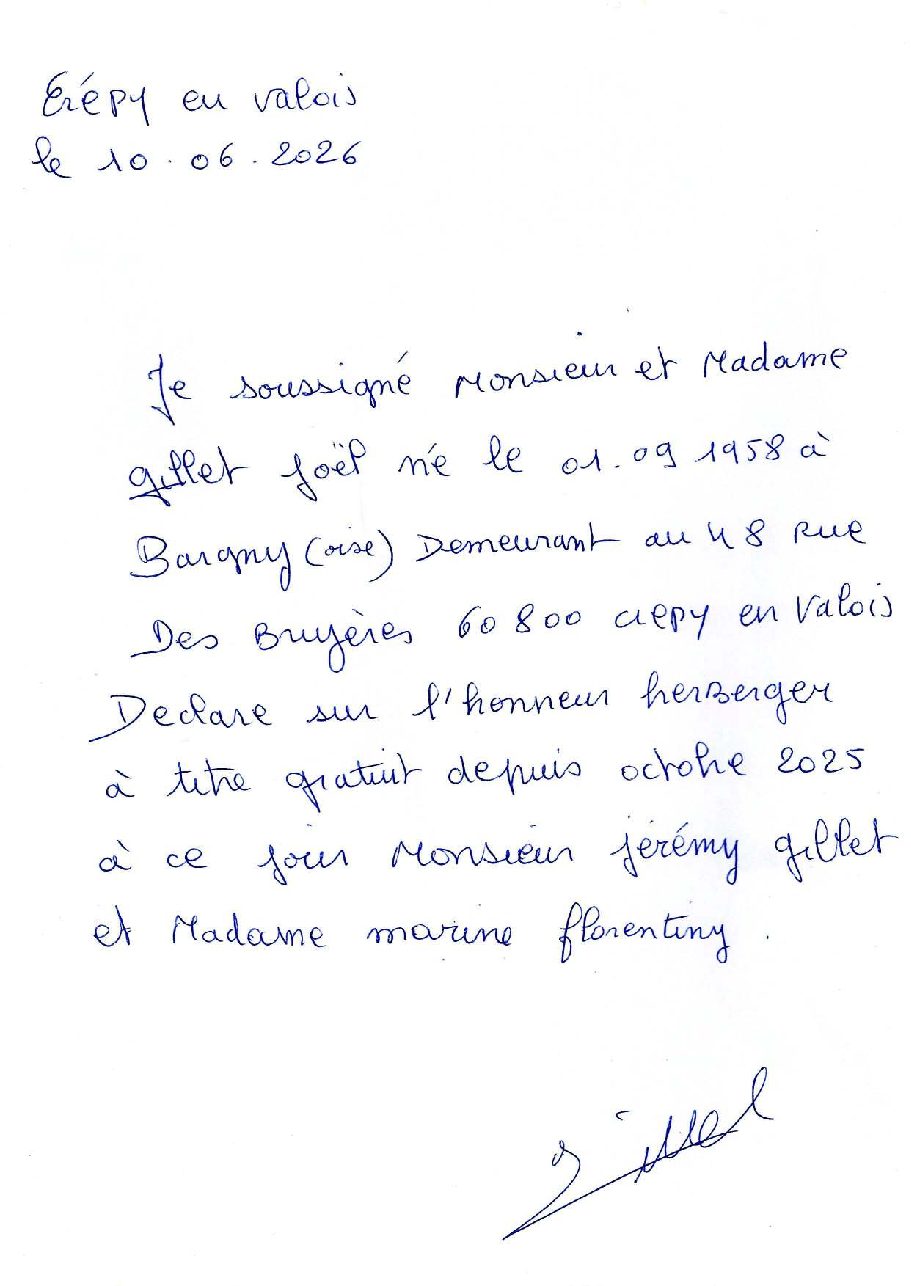 Crépy en valois
le 10.06.2026
Je soussigné Monsieur et Madame
gillet Joël né le 01.09 1958 à
Bargny (oise) Demeurant au 48 Rue
Des Bruyères 60800 crepy en Valois
Declare sur l'honneur herberger
à titre gratuit depuis octobre 2025
à ce jour Monsieur jérémy gillet
et Madame marine florentiny.
Gillet